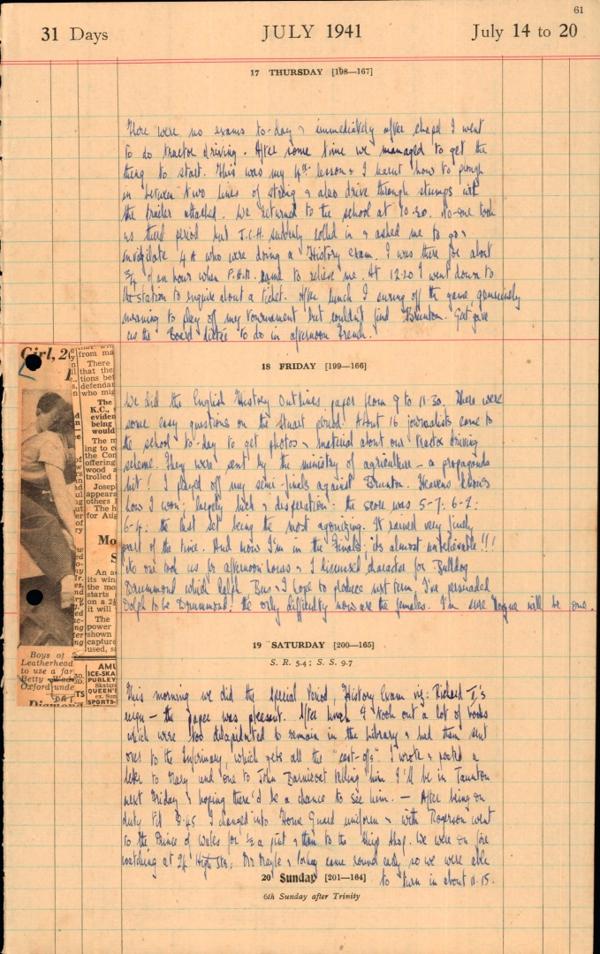 61
31 Days JULY 1941 July 14 to 20
17 THURSDAY [198—167]
There were no exams to-day & immediately after chapel I went
to do tractor driving. After some time we managed to get the
thing to start. This was my 4th lesson & I learnt how to plough
in between two lines of string & also drive through stumps with
the trailer attached. We returned to the school at 10-30. No-one took
us third period but J.C.H. suddenly rolled in & asked me to go &
invigilate 4A who were doing a History exam. I was there for about
3/4 of an hour when P.H.B. came to relieve me. At 12-20 I went down to
the station to enquire about a ticket. After lunch I swung off the game, generously
meaning to play off my tournament but couldn't find Brunton. gave
us the Board to do in afternoon French.
18 FRIDAY [199—166]
We did the English History Outlines paper from 9 to 11-30. There were
some easy questions on the Stuart period. About 16 journalists came to
the school to-day to get photos & material about our tractor driving
scheme. They were sent by the ministry of agriculture – a propaganda
hit! I played off my semi-finals against Brunton. Heavens knows
how I won; largely luck & desperation: the score was 5-7: 6-2:
6-4: the last set being the most agonizing. It rained very finely
part of the time. And now I'm in the Finals: its almost unbelievable!!!
No one took us for afternoon hours & I discussed characters for Bulldog
Drummond which Ralph, & I hope to produce next term. I've persuaded
to be Drummond: the only difficulty now are the females. I'm sure will be one.
19 SATURDAY [200—165]
S. R. 5-4; S. S. 9-7
This morning we did the Special Period History Exam viz: Richard I's
reign – the paper was pleasant. After lunch I took out a lot of books
which were too dilapidated to remain in the library & had them sent
over to the Infirmary, which gets all the "cast-offs". I wrote & posted a
letter to Mary and one to John telling him I'll be in Taunton
next Friday & hoping there'd be a chance to see him. — After being on
duty till 8-45 I changed into Home Guard uniform & with Rogerson went
to the Prince of Wales for 1/2 a pint & then to the . We were on fire
watching at 24 High Str: Mr & came round early, so we were able
to turn in about 11-15.
20 Sunday [201—164]
6th Sunday after Trinity
Girl, 2
Boys of
Leatherhead
to use a far
Betty
Oxford unde
The
K.C.,
eviden
being
would
AMU
ICE-SKA
PURLEY
QUEEN'
SPORTS